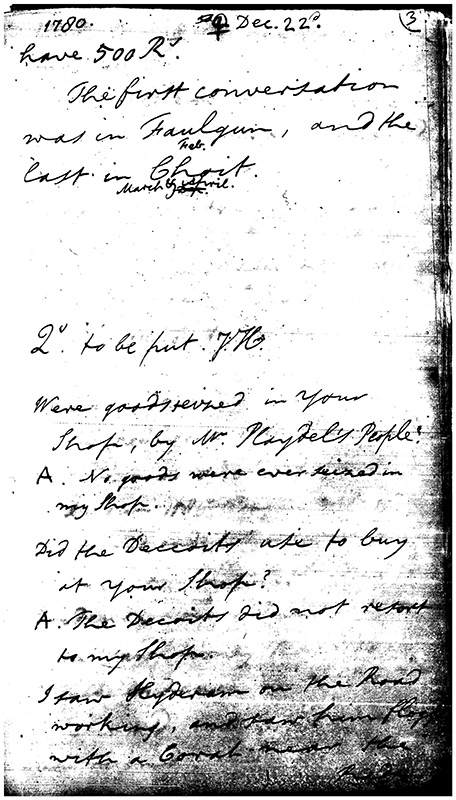 1780. ♀ Dec. 22d. 3
have 500 Rs.
The first conversation
was in Faulgun, and the
Feb.
last in Choit.
March & April.
Qu. to be put. J.H.
Were goods seized in your
Shop, by Mr Playdel's People?
A. No goods were ever seized in
my Shop.
Did the Decoits use to buy
at your Shop?
A. The Decoits did not resort
to my Shop.
I saw Hyderam on the Road
working, and saw him
with a Corah near the